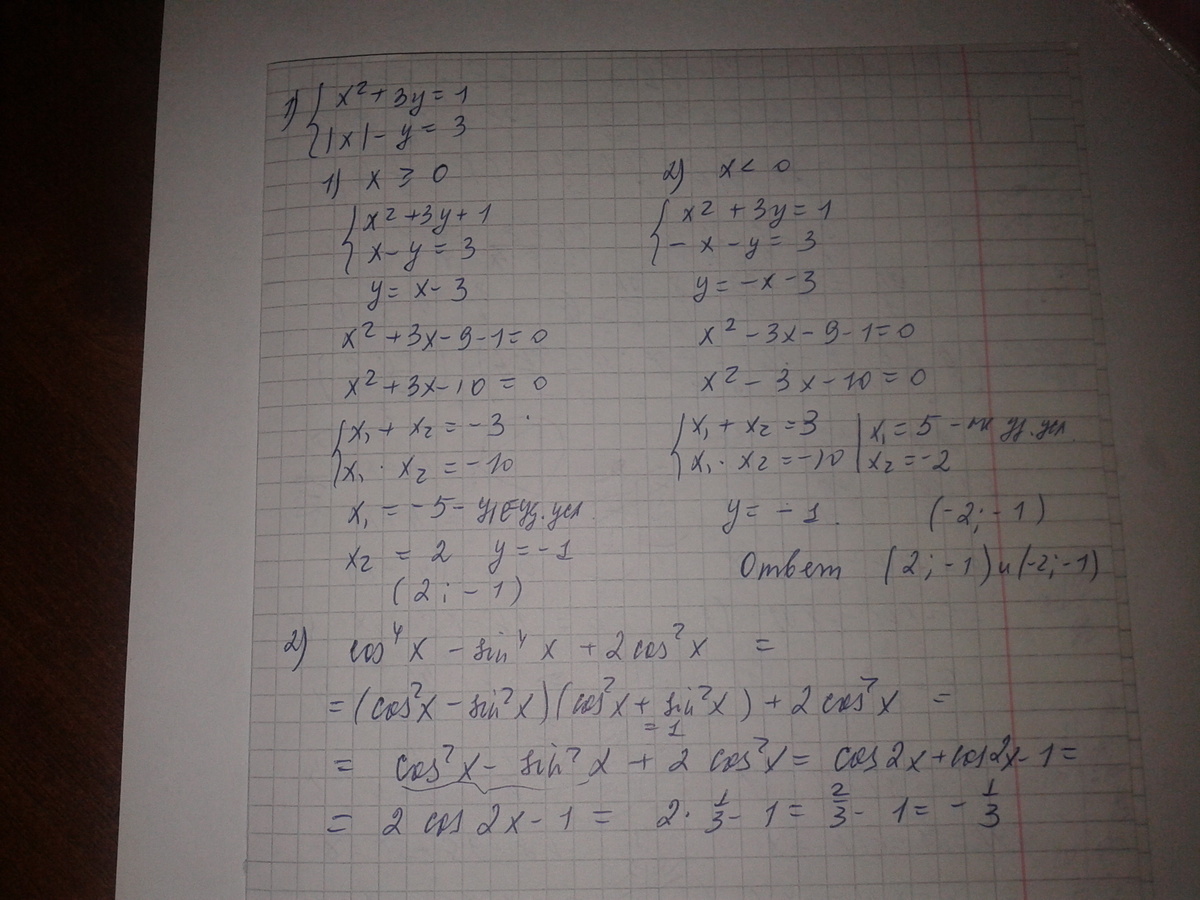 1) { x² + 3y = 1
|x| - y = 3
1) x ≥ 0
{ x² + 3y + 1
x - y = 3
y = x - 3
x² + 3x - 9 - 1 = 0
x² + 3x - 10 = 0
{ x₁ + x₂ = -3
x₁ · x₂ = -10
x₁ = -5 -
x₂ = 2 y = -1
(2; -1)
2) x < 0
{ x² + 3y = 1
- x - y = 3
y = -x - 3
x² - 3x - 9 - 1 = 0
x² - 3x - 10 = 0
{ x₁ + x₂ = 3 | x₁ = 5 -
x₁ · x₂ = -10 | x₂ = -2
y = -1. (-2; -1)
Ответ (2; -1) и (-2; -1)
2) cos⁴x - sin⁴x + 2cos²x =
= (cos²x - sin²x)(cos²x + sin²x) + 2cos²x =
= 1
= cos²x - sin²x + 2 cos²x = cos2x + cos2x - 1 =
= 2 cos 2x - 1 = 2 · 1/3 - 1 = 2/3 - 1 = - 1/3